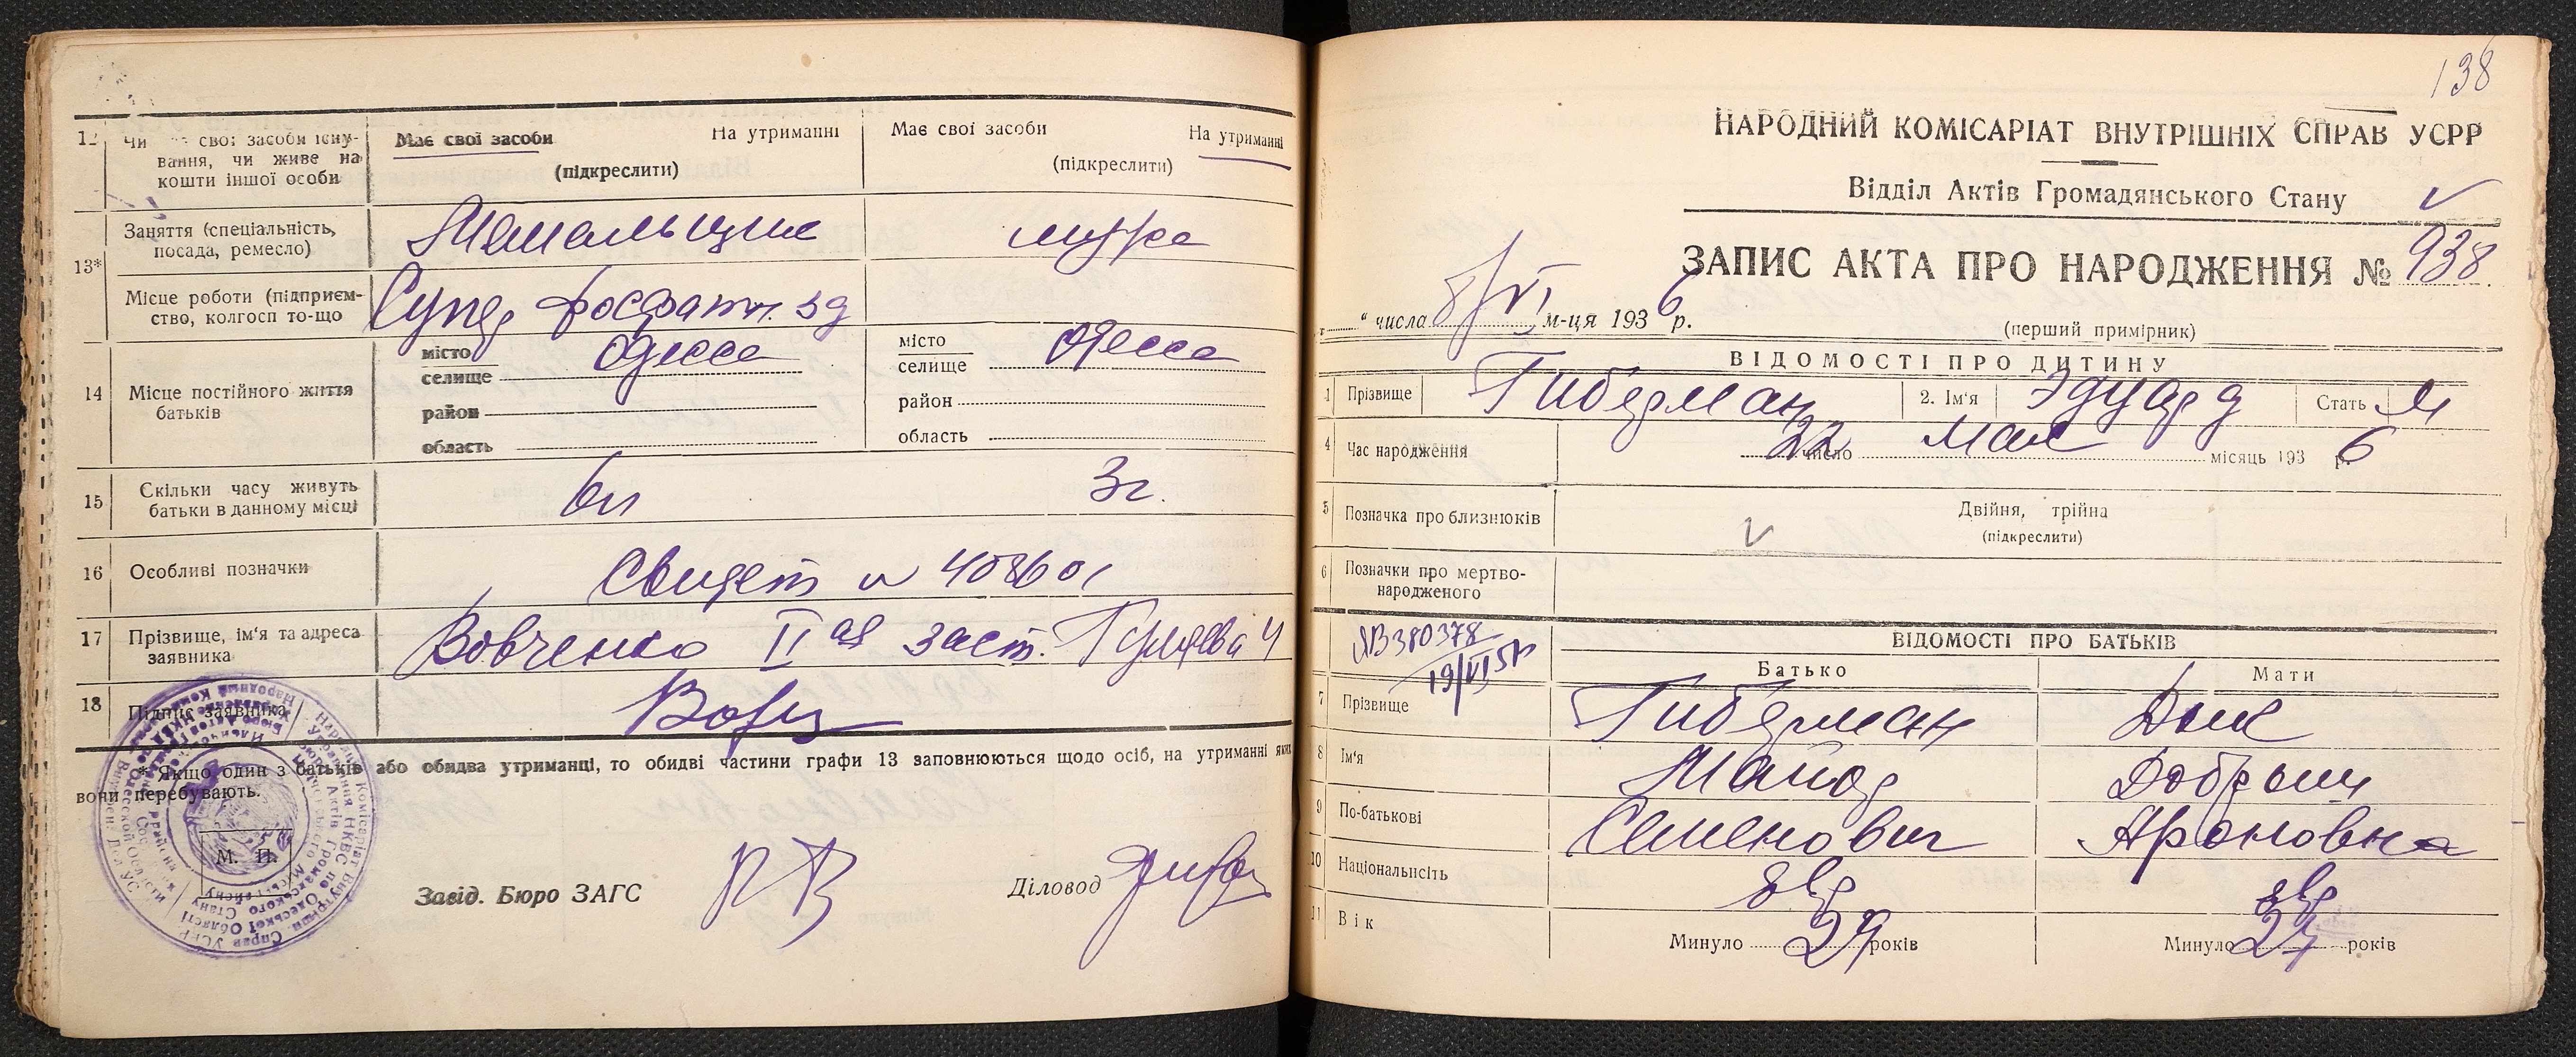 12 Чи має свої засоби існування, чи живе на кошти іншої особи
Має свої засоби На утриманні
(підкреслити)
Має свої засоби На утриманні
(підкреслити)
13*
Заняття (спеціальність, посада, ремесло)
Місце роботи (підприємство, колгосп то-що
Супер фосфатн. зд
14 Місце постійного життя батьків
місто Одесса
селище
район
область
місто Одесса
селище
район
область
15 Скільки часу живуть батьки в данному місці
6л 3г.
16 Особливі позначки
Свидет N 408601
17 Прізвище, ім'я та адреса заявника
Вовченко ІІ ая заст.
18 Підпис заявника
* Якщо один з батьків або обидва утриманці, то обидві частини графи 13 заповнюються щодо осіб, на утриманні яких
вони перебувають.
М. П.
Завід. Бюро ЗАГС
Діловод
138
НАРОДНИЙ КОМІСАРІАТ ВНУТРІШНІХ СПРАВ УСРР
Відділ Актів Громадянського Стану
ЗАПИС АКТА ПРО НАРОДЖЕННЯ № 938
„ “ числа 8/VI м-ця 1936 р.
(перший примірник)
ВІДОМОСТІ ПРО ДИТИНУ
1 Прізвище Гиберман 2. Ім'я Эдуард Стать М
4 Час народження 22 число Мая місяць 1936 р.
5 Позначка про близнюків
Двійня, трійна
(підкреслити)
6 Позначки про мертвонародженого
ЯВ 380378
19/VI 51
ВІДОМОСТІ ПРО БАТЬКІВ
Батько Мати
7 Прізвище Гиберман Дык
8 Ім'я Майор Добрыш
9 По-батькові Семенович Ароновна
10 Національнсіть евр евр
11 Вік Минуло 29 років Минуло 27 років